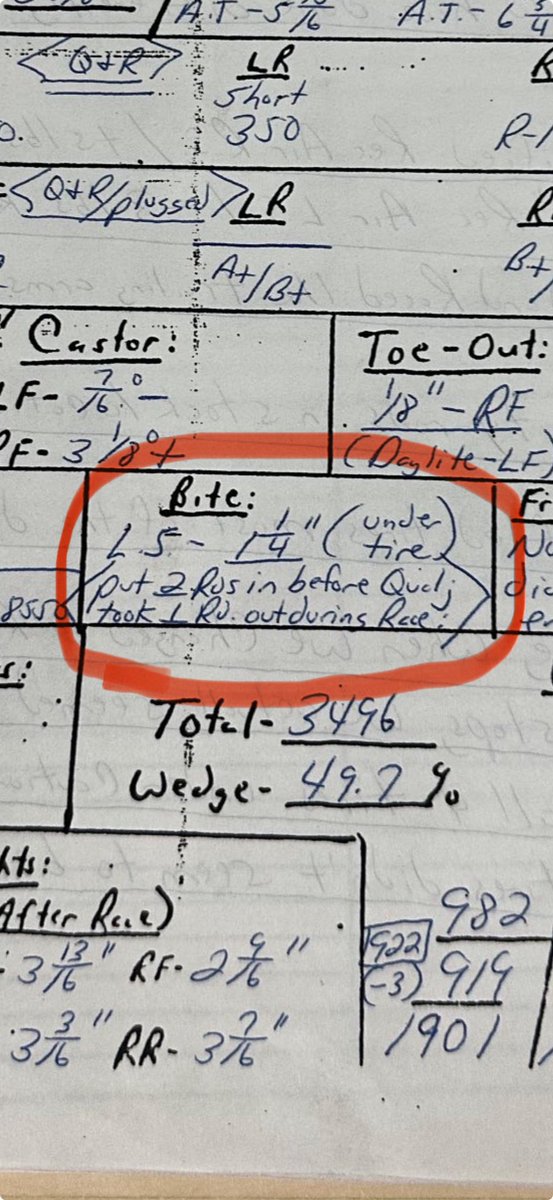 A.T.-5 A.T.-6 3/4
<Q+R> LR
short
350 R-1
<Q+R/plugged> LR
A+/B+ B+
Castor: Toe-Out:
LF- 7/16°- 1/8" - RF
3 1/8°+ (Daylite-LF)
Bite:
L.S- 1 1/4" (under tire)
put 2 RDS in before Qual;
took 1 RD. out during Race:
8550
Total- 3496
Wedge- 49.7 %
After Race)
3 13/16" RF- 2 9/16"
3 3/16" RR- 3 7/16"
982
922 919
(-3)
1901